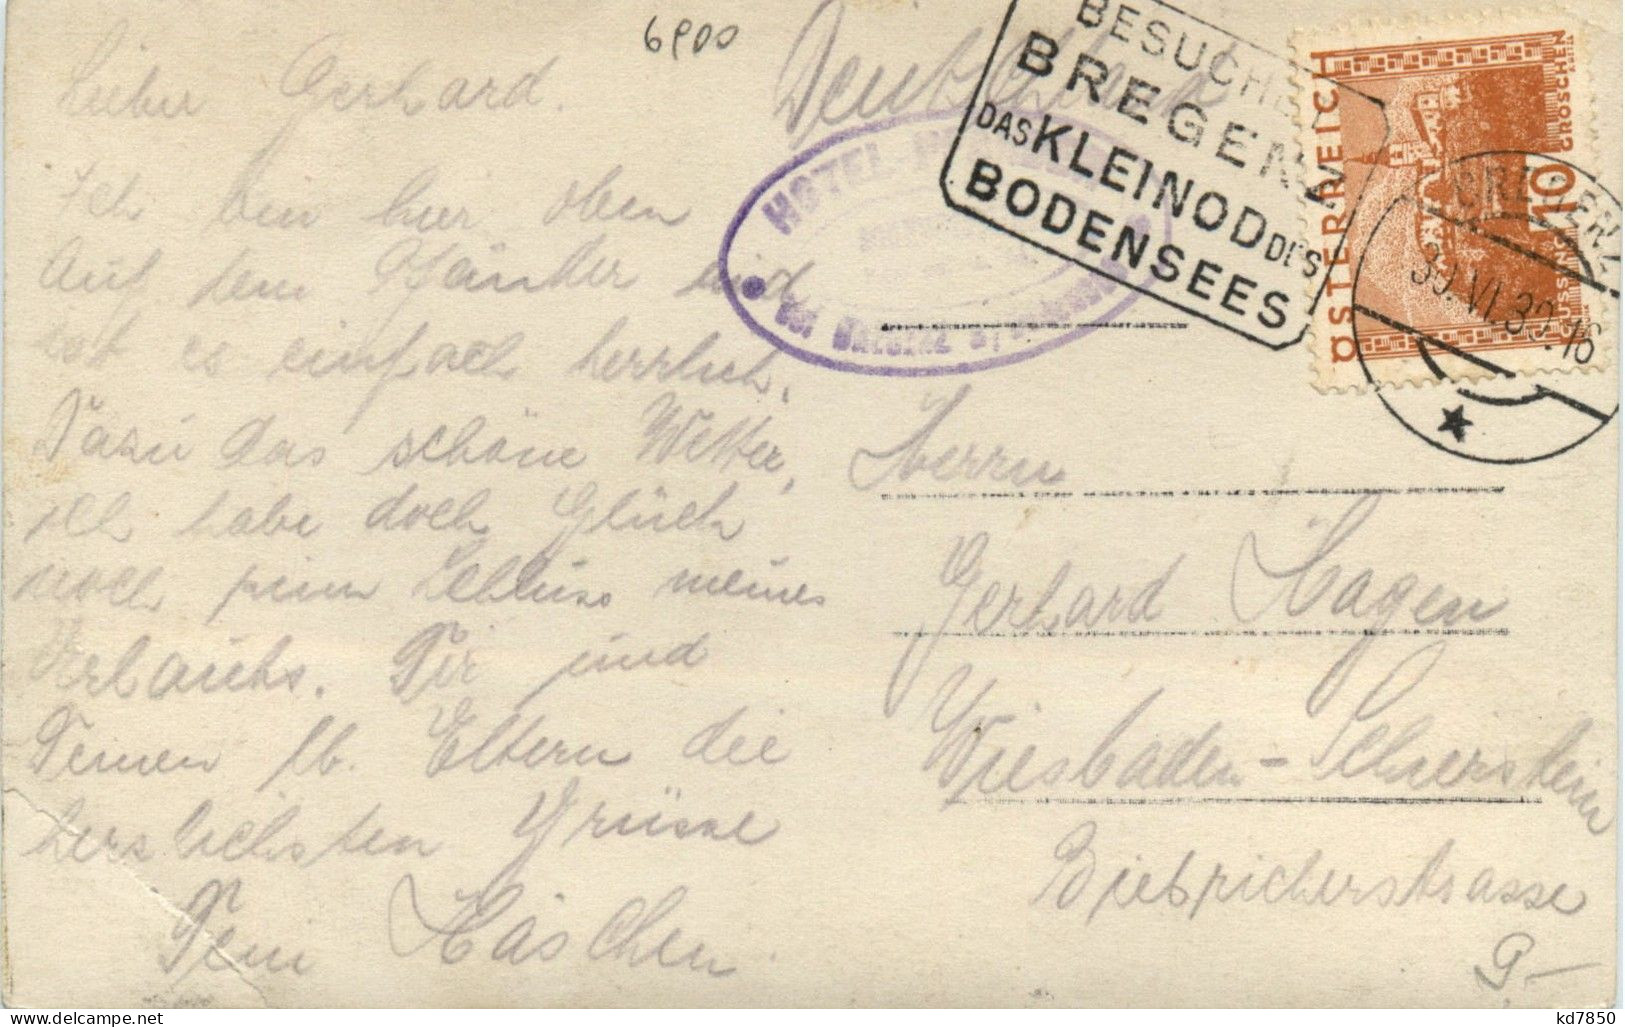 6900
Lieber Gerhard.
Ich bin hier oben
auf dem Pfänder und
hab es einfach herrlich.
Dazu das schöne Wetter,
ich habe doch Glück
noch zum Schluss meines
Urlaubs. Dir und
Deinen lb. Eltern die
herzlichsten Grüsse
Dein Häschen.
Deutschland
HOTEL
bei Bregenz
BESUCHE
BREGENZ
DAS KLEINOD DES
BODENSEES
ÖSTERREICH
10
GROSCHEN
GÜSSING
BREGENZ
30.VI.30.16
Herrn
Gerhard Hagen
Wiesbaden-Schierstein
Biebricherstrasse
9-
kd7850